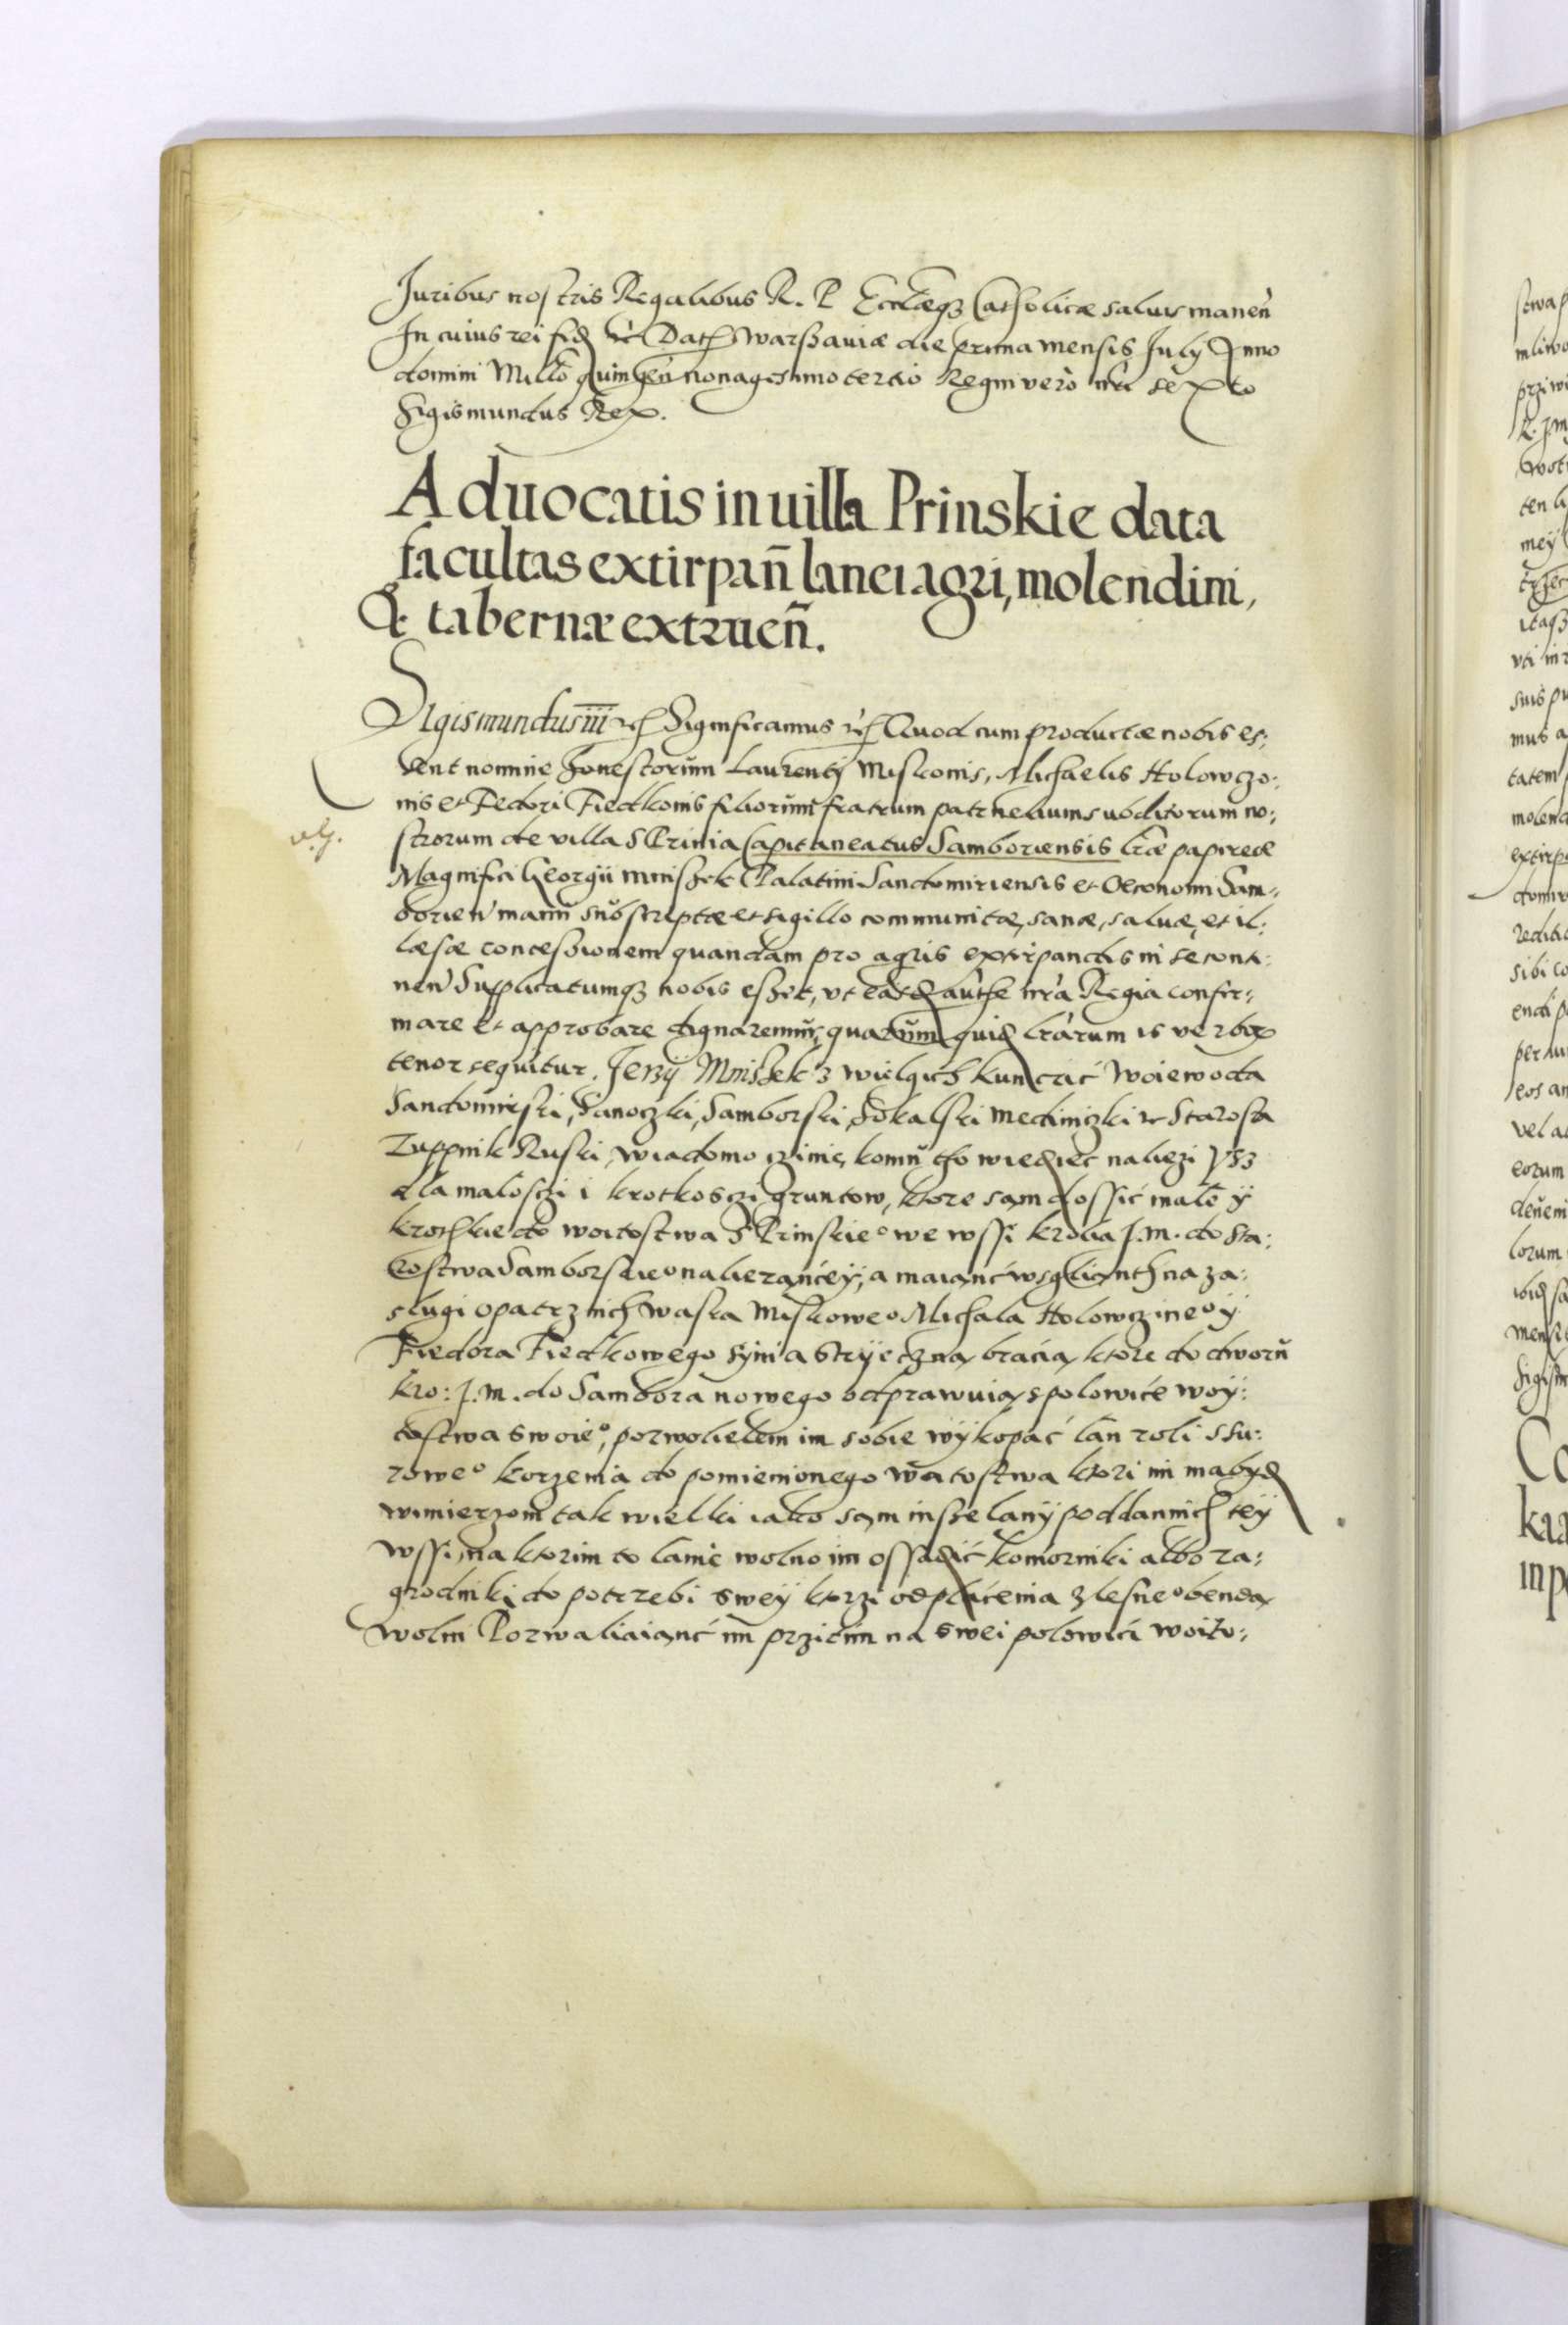 Juribus nostris Regalibus R. P. Ecclæq₃ Catholicæ saluis manen̄
In cuius rei fid etc̄ Dat Warszauiæ die prima mensis July Anno
domini Mill̄o quingen̄ nonagesimo tertio Regni vero nr̄i sexto
Sigismundus Rex.
Aduocatis in uilla Prinskie data
facultas extirpan̄ lanei agri, molendini,
& tabernæ extruen̄.
Sigismundus iii etc̄ Significamus etc̄ Quod cum productæ nobis es:
sent nomine honestorum Laurentÿ Miskonis, Michaelis Holowczo:
nis et Fedori Fiedkonis filiorum fratrum patrueliumsubditorum no:
strorum de villa SPrinia Capitaneatus Samboriensis lr̄æ papireæ
Magnifici Georgii Mniszek Palatini Sandomiriensis et Oeconomi Sam:
borien̄ manu subscriptæ et sigillo communitæ, sanæ, saluæ, et il:
læsæ concessionem quandam pro agris extirpandis in se conti:
nen̄ Supplicatumq₃ nobis esset, vt easd auth̄e nr̄a Regia confir:
mare et approbare dignaremur, quarum quid lr̄arum is verbor
tenor sequitur. Jerzÿ Mniszek z wielgich Kunczic Woiewoda
Sandomirski, Sanoczki, Samborski, Sokalski Mediniczki etc Starosta
Zuppnik Ruski, wiadomo czinie, komu tho wiedziec naliezi ÿsz
dla malosczi i krotkosczi gruntow, ktore sam dossić malo ÿ
krothkie do woitostwa SPrinskie° we wssi Krolia J.m. do Sta:
rostwa Samborskie° nalierzancéÿ, a maianć wsgliantħ na za:
slugi opatrznich Waska Miskowe° Michala Holowczine° ÿ
Fiedora Fiedkowego syni a Strÿecznaÿ bracia ktore do dworu
kro: J.m. do Sambora nowego odprawuia spolowice woÿ:
tostwa swoie°, pozwolielem im sobie wÿkopać lan roli ssu:
rowe° korzenia do pomienionego woitostwa ktori im ma bÿd
wimierzoni tak wielki iako sam insze lanÿ poddannich teÿ
wssi, na ktorim to lanie wolno im ossadzić komorniki albo za:
grodniki do potrzebi sweÿ ktorzi od placenia z lesne° benda
wolni Pozwaliaianć im przitim na swei polowici woito: